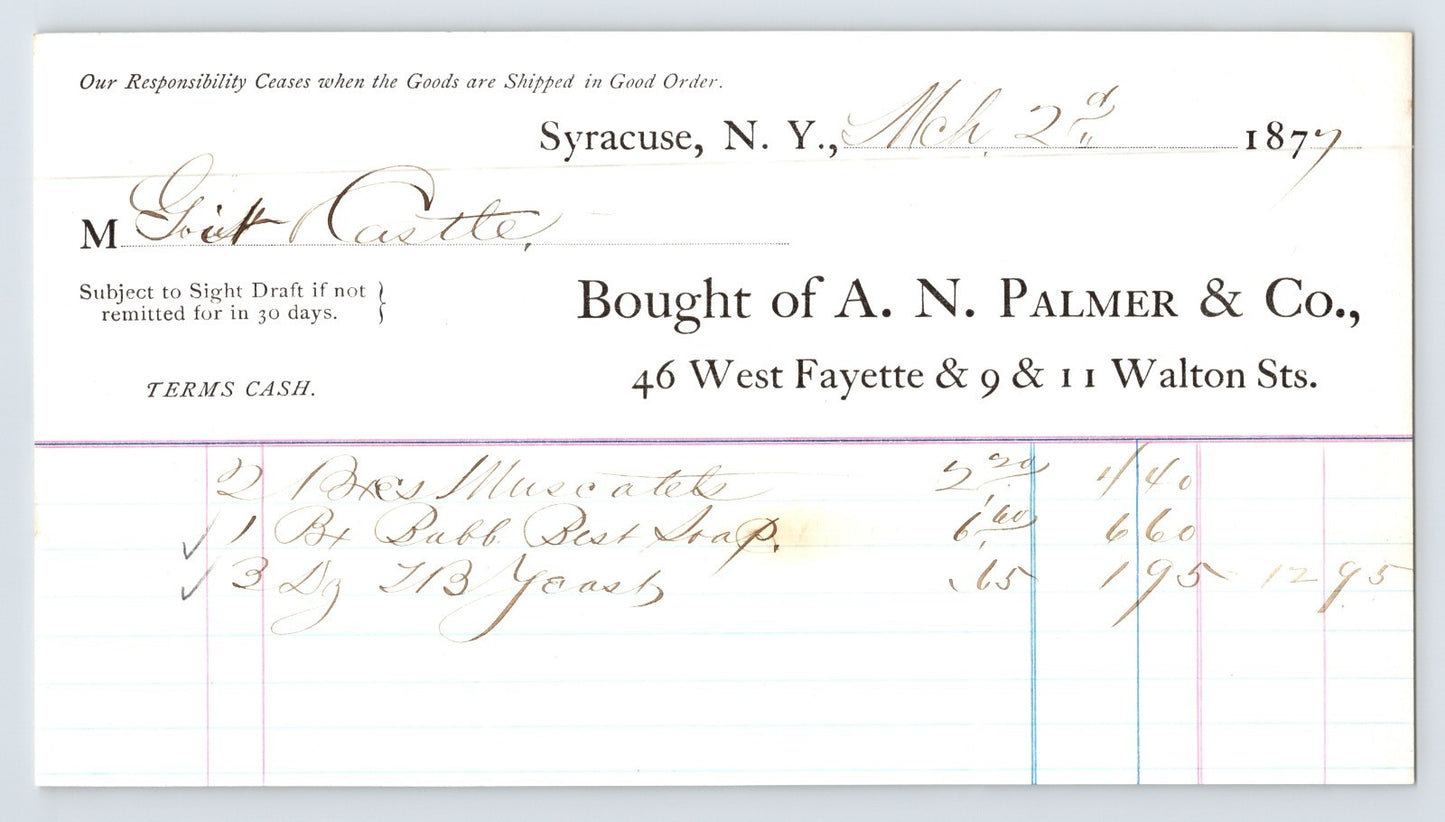 Our Responsibility Ceases when the Goods are Shipped in Good Order.
Syracuse, N. Y., Mch. 2d 1877
M Castle,
Subject to Sight Draft if not
remitted for in 30 days.
Bought of A. N. Palmer & Co.,
TERMS CASH.
46 West Fayette & 9 & 11 Walton Sts.
2 Bxes Muscatels 2 20 4 40
✓ 1 Bx Babb. Best Soap. 6.60 6 60
✓ 3 Dz TB Yeast .65 1 95 12 95